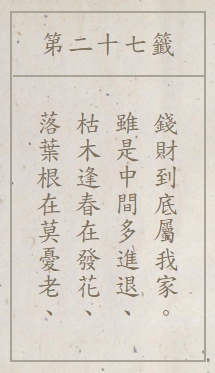 第二十七籤
錢財到底屬我家。
雖是中間多進退、
枯木逢春在發花、
落葉根在莫憂老、